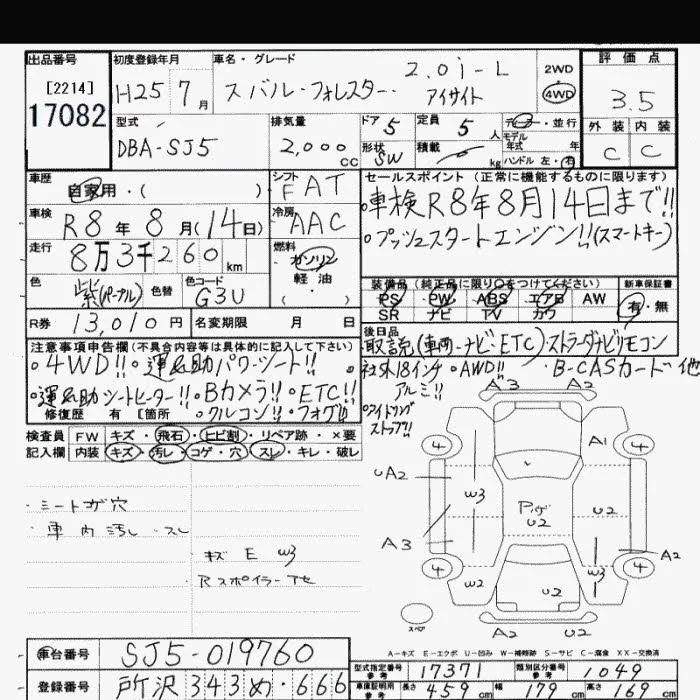 出品番号 初度登録年月 車名・グレード 評価点
[2214] H25 7月 スバル・フォレスター 2.0i-L アイサイト 2WD 4WD 3.5
17082
型式 排気量 ドア 5 定員 5人 ディーラー・並行 外装 内装
DBA-SJ5 2,000cc 形状 SW 積載 kg モデル年式 年 ハンドル 左・右 C C
車歴 自家用・( ) シフト FAT セールスポイント(正常に機能するものに限ります)
車検 R8年8月(14日) 冷房 AAC ・車検R8年8月14日まで!!
走行 8万3千260km 燃料 ガソリン 軽油 ( ) ・プッシュスタートエンジン!!(スマートキー)
色 紫(パープル) 色替 色コード G3U 装備品(純正品に限り○をつけてください) 新車保証書
PS PW ABS エアB AW 有・無
SR ナビ TV カワ
R券 13,010円 名変期限 月 日 後日品
取説(車両・ナビ・ETC)ストラーダナビリモコン
注意事項申告欄(不具合内容等は具体的に記入して下さい) 社外18インチアルミ!! ・AWD!! ・B-CASカード他
・4WD!!・運&助パワーシート!!
・運&助シートヒーター!!・Bカメラ!!・ETC!! ・アイドリングストップ!!
修復歴 有[箇所 ・クルコン!!・フォグ!!
検査員 FW キズ・飛石・ヒビ割・リペア跡・×要
記入欄 内装 キズ・汚レ・コゲ・穴・スレ・キレ・破レ
・シートコゲ穴
・車内汚レ・スレ
キズ E W3
Rスポイラー
A3 A2
4 A1 4
A2 W3 U2
Pいが U2
A3 A2
4 W2 W3 4
U2
スペア A2 U2
A-キズ E-エクボ U-凹み W-補修跡 S-サビ C-腐食 XX-交換済
車台番号 SJ5-019760 型式指定番号 参考 17371 類別区分番号 参考 1049
登録番号 所沢 343 め・666 車庫証明用 参考 長さ 459cm 幅 179cm 高さ 169cm